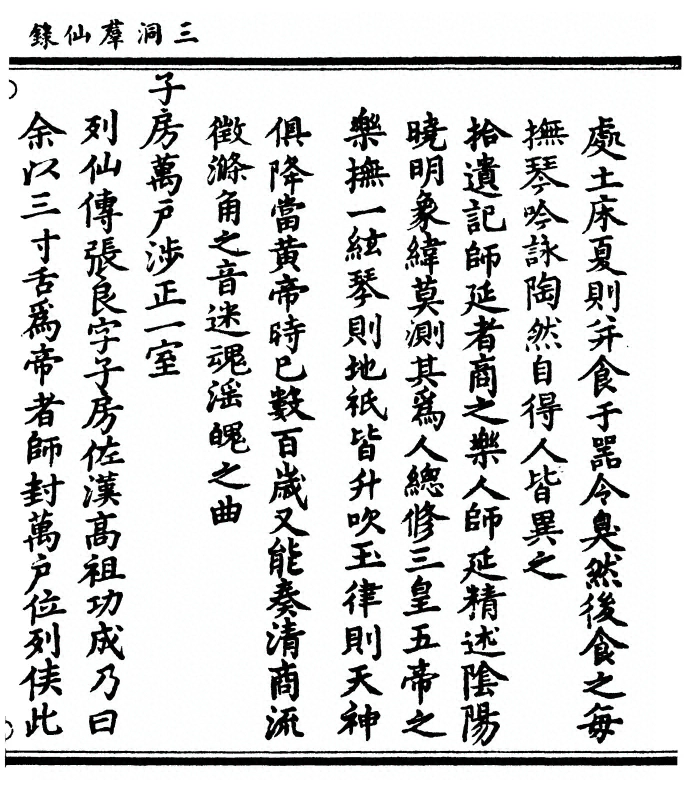 三洞羣仙錄
處土床夏則并食于器令臭然後食之每
撫琴吟詠陶然自得人皆異之
拾遺記師延者商之樂人師延精述陰陽
曉明象緯莫測其爲人總修三皇五帝之
樂撫一絃琴則地祇皆升吹玉律則天神
俱降當黄帝時已數百歲又能奏清商流
徵滌角之音迷魂滛魄之曲
子房萬戶涉正一室
列仙傳張良字子房佐漢高祖功成乃曰
余以三寸舌爲帝者師封萬戶位列侯此